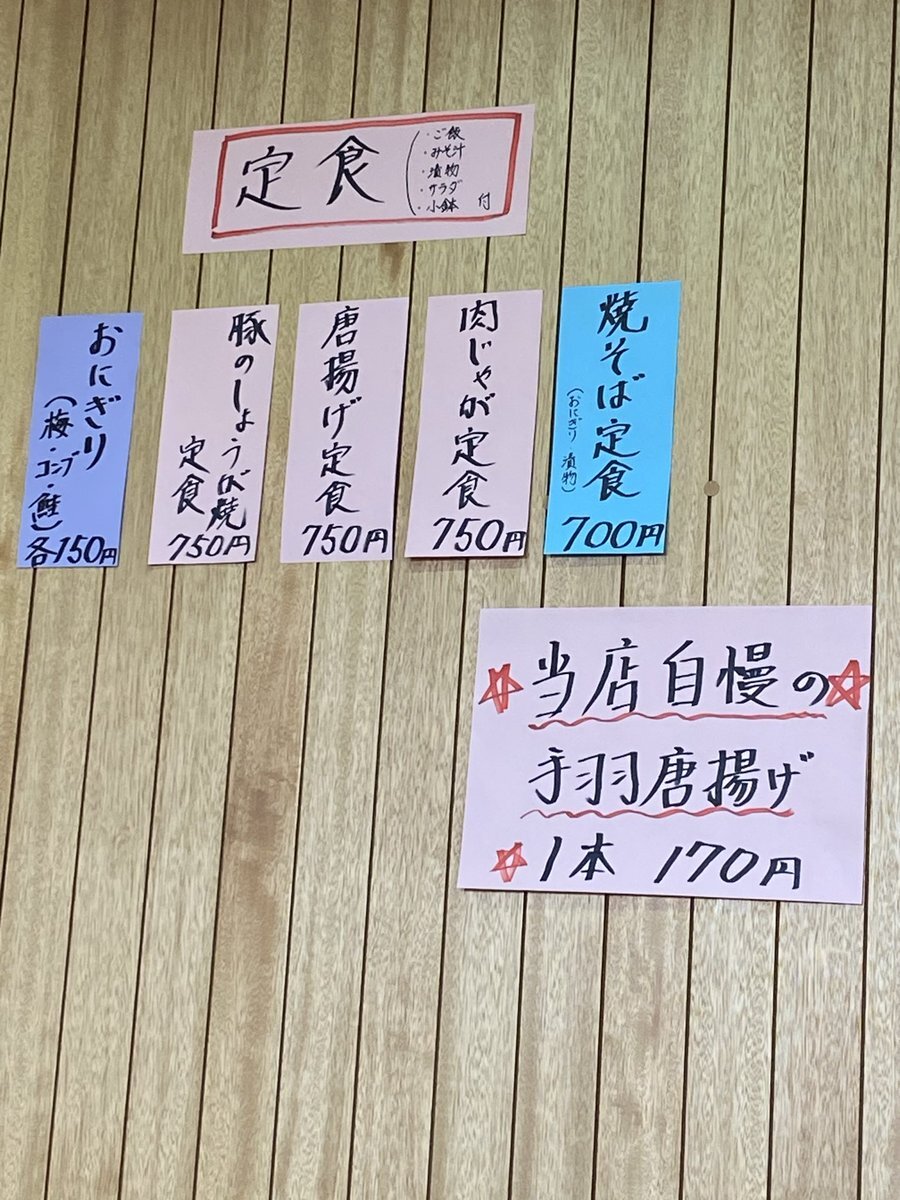 定食
・ご飯
・みそ汁
・漬物
・サラダ
・小鉢 付
焼そば定食
(おにぎり 漬物)
700円
肉じゃが定食
750円
唐揚げ定食
750円
豚のしょうが焼
定食
750円
おにぎり
(梅・コンブ・鮭)
各150円
☆当店自慢の☆
手羽唐揚げ
☆1本 170円